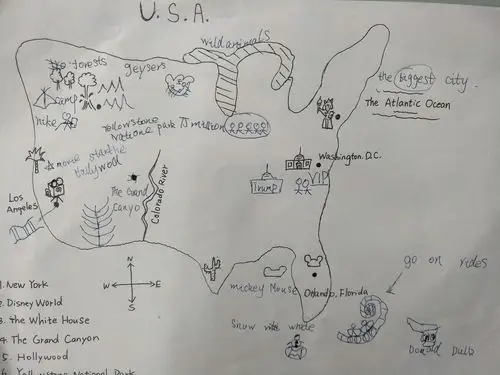 U.S.A.
the forests
geysers
wild animals
the biggest city.
The Atlantic Ocean
camp
hike
Yellowstone
National park
million
movie star
Hollywood
Washington, D.C.
VIP
Trump
Los
Angeles
The Grand
Canyo
Colorado River
N
W E
S
mickey Mouse
Orlando, Florida
go on rides
Snow white
Donald
1. New York
2. Disney World
3. The White House
4. The Grand Canyon
5. Hollywood
6. Yellowstone National Park